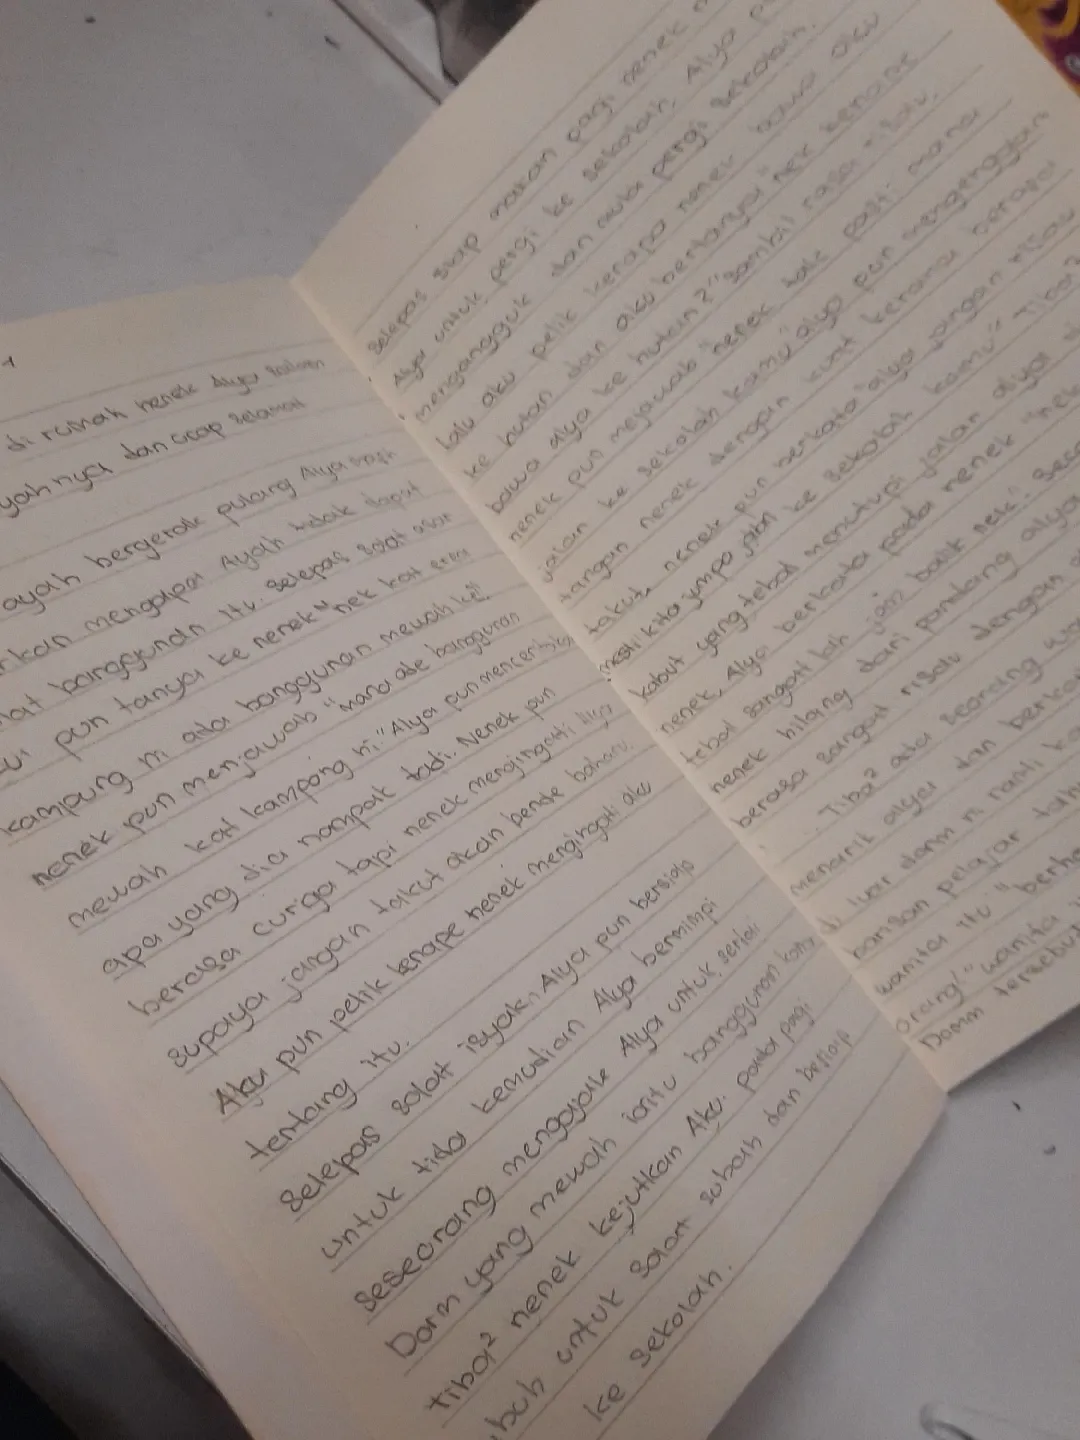 di rumah nenek Alya Salam
yahnya dan ucap selamat
ayah bergerak pulang Alya
rkan mengapa Ayah tidak dapat
hat banggundn itu. Selepas solat asar
pun tanya ke nenek "nek kat
kampung ni ada banggunan mewah ke?
nenek pun menjawab "mana ade banggunan
mewah kat kampong ni." Alya pun
apa yang dia nampak tadi. Nenek pun
berasa curiga tapi nenek mengingati
supaya jangan takut akan bende baharu.
Aku pun pelik kenape nenek mengingati aku
tentang itu.
Selepas solat isyak, Alya pun bersiap
untuk tido kemudian Alya bermimpi
seseorang mengajak Alya untuk
Dorm yang mewah iaitu banggunan
tiba² nenek kejutkan Aku. pada pagi
untuk solat subah dan bersiap
ke sekolah.
Selepas siap makan pagi nenek
Alya untuk pergi ke sekolah. Alya
mengangguk dan mula pergi sekolah.
lalu aku pelik kenapa nenek bawa aku
ke hutan dan aku bertanya" nek kenape
bawa alya ke hutan?" Sambil rasa
nenek pun mejawab "nenek tak pasti mana
jalan ke sekolah kamu" alya pun
tangan nenek dengan kuat kerana berapa
takut, nenek pun berkata "alya jangan risau
mesti kita jumpa jalan ke sekolah kamu" Tiba²
kabut yang tebal menutupi jalan alya
nenek, Alya berkata pada nenek "nek
tebal sangat lah jom balik nek".
nenek hilang dari pandang alya
berasa sangat risau dengan
Tiba² ada seorang
menarik alya dan
di luar dorm ni nanti
pelajar
wamita itu"
orang!" wanita
Dorm tersebut